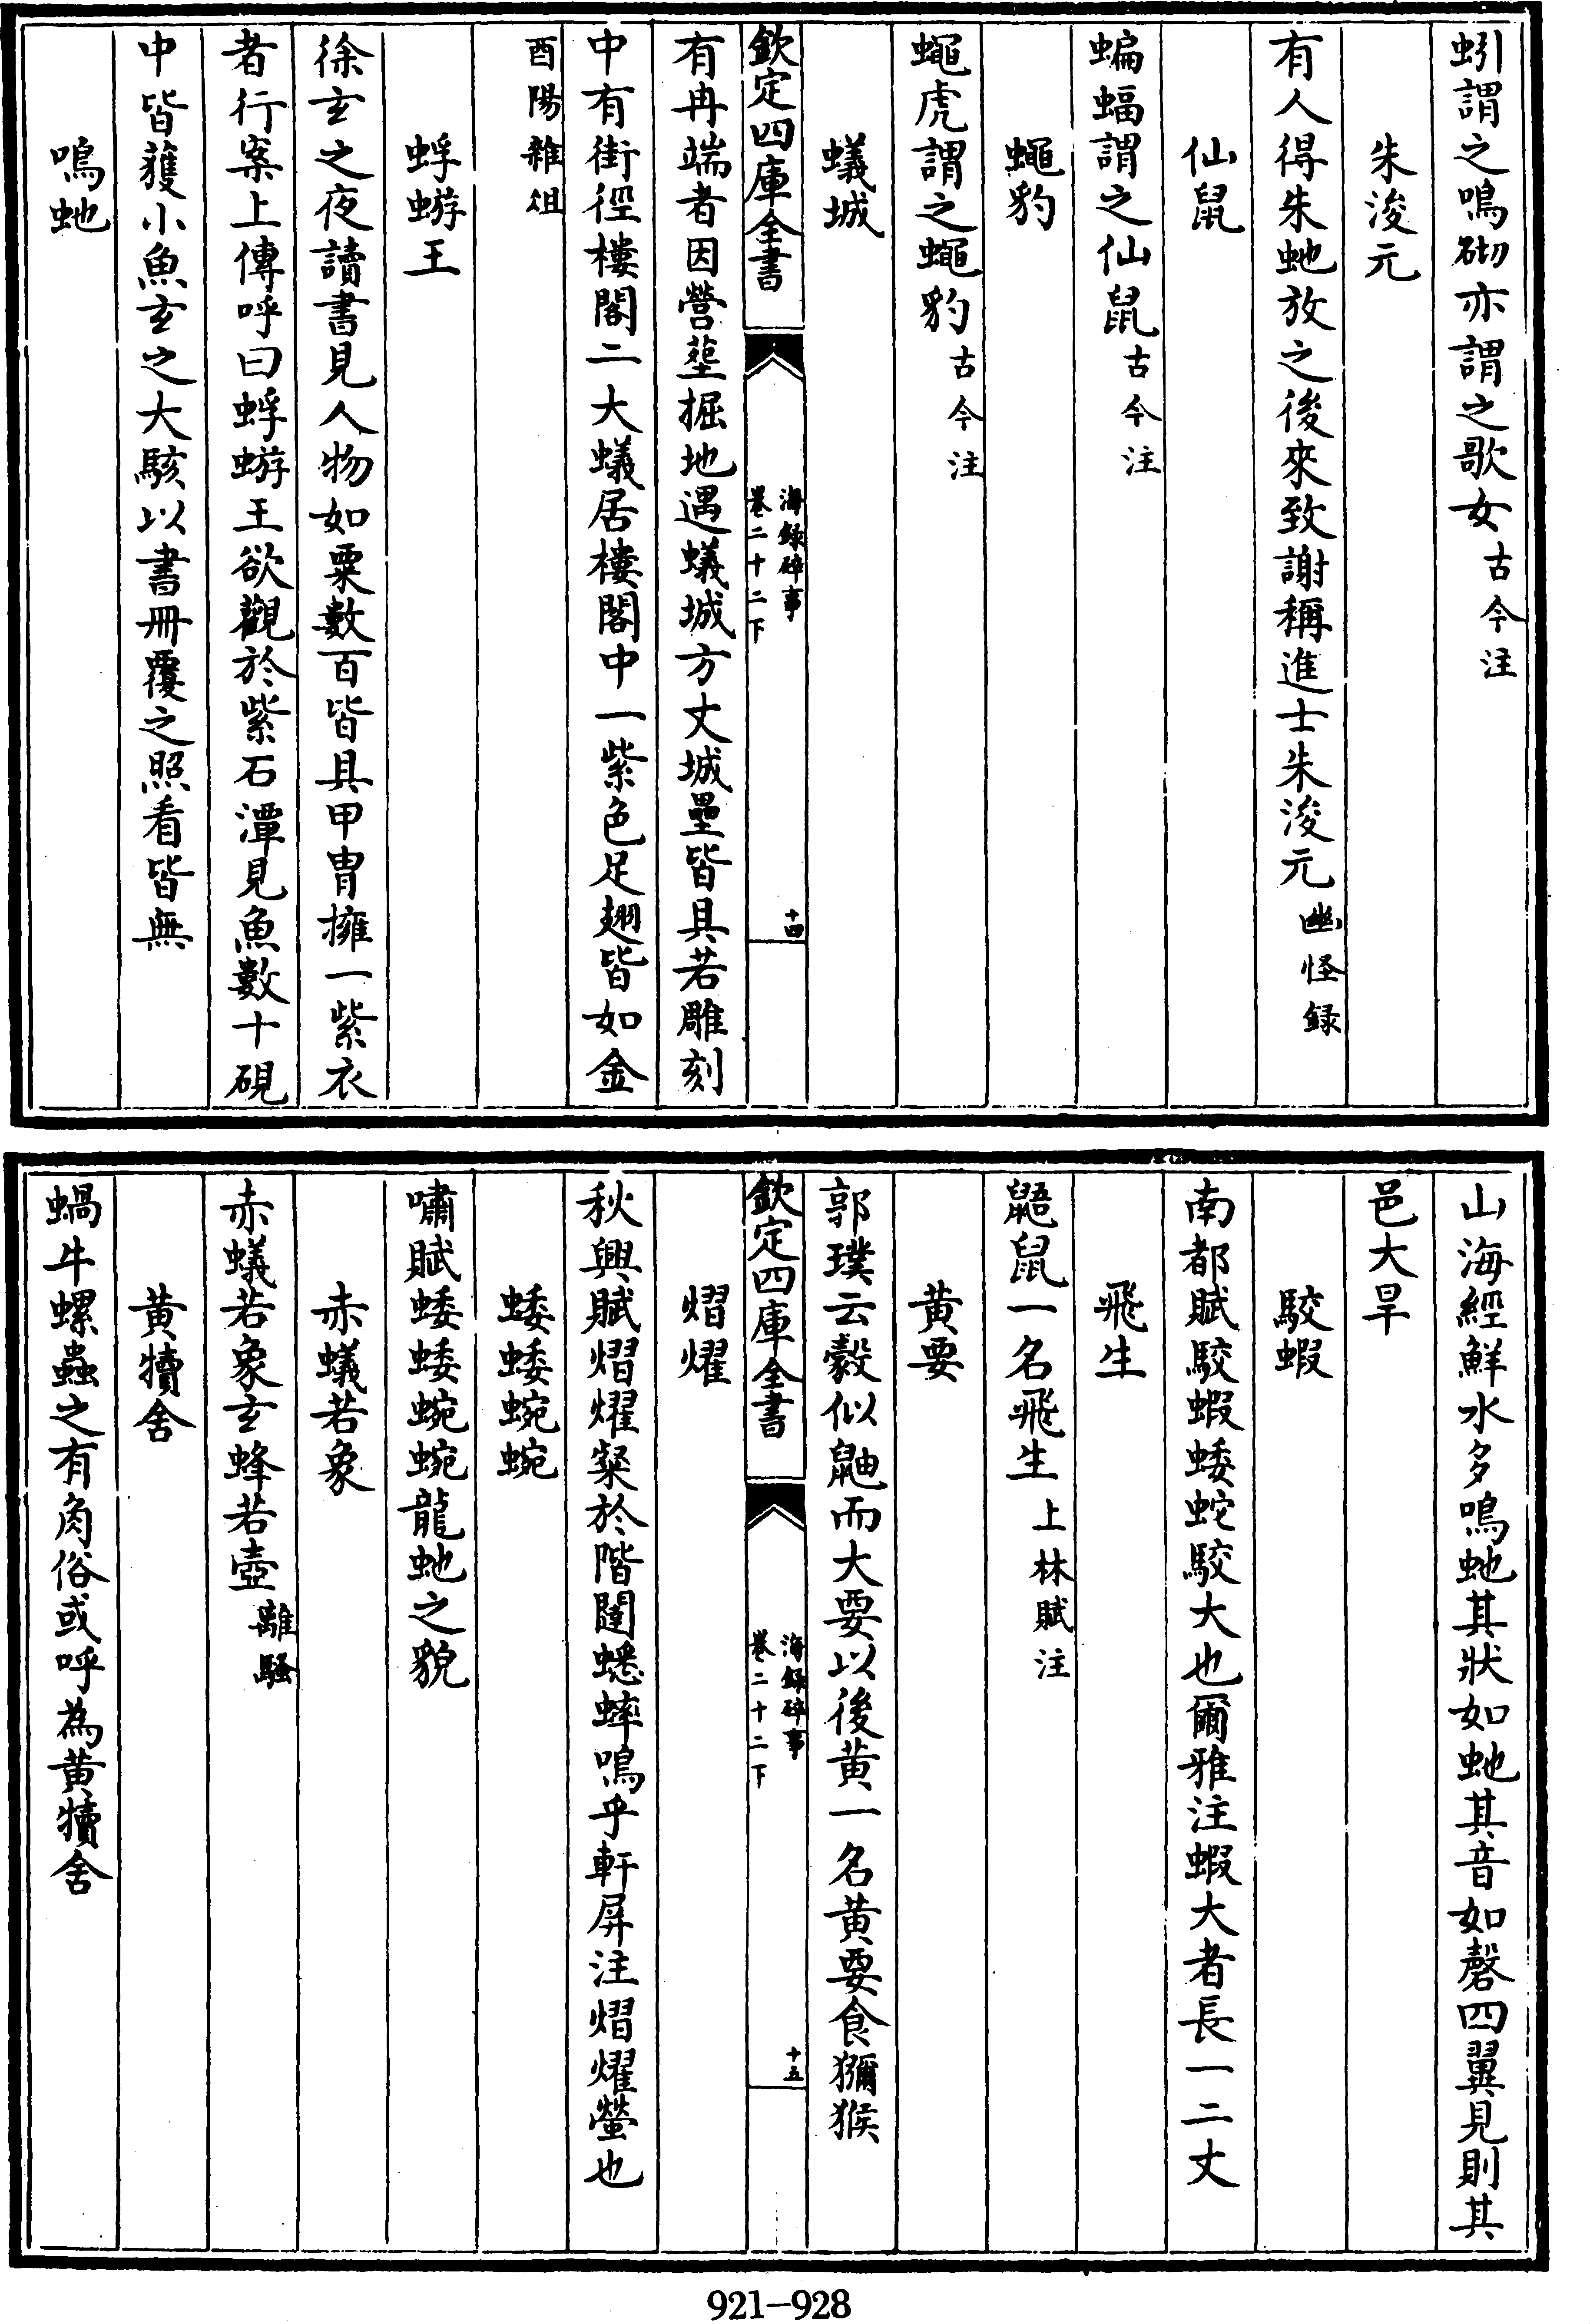 蚓謂之鳴砌亦謂之歌女古今注
朱浚元
有人得朱虵放之後來致謝稱進士朱浚元幽怪録
仙鼠
蝙蝠謂之仙鼠古今注
蠅豹
蠅虎謂之蠅豹古今注
蟻城
欽定四庫全書
海録碎事
卷二十二下
十四
有冉端者因營塋掘地遇蟻城方丈城壘皆具若雕刻
中有街徑樓閣二大蟻居樓閣中一紫色足翅皆如金
酉陽雜俎
蜉蝣王
徐玄之夜讀書見人物如粟數百皆具甲冑擁一紫衣
者行案上傳呼曰蜉蝣王欲觀於紫石潭見魚數十硯
中皆蒦小魚玄之大駭以書冊覆之照看皆無
鳴虵
山海經鮮水多鳴虵其狀如虵其音如磬四翼見則其
邑大旱
駮蝦
南都賦駮蝦蜲蛇駮大也爾雅注蝦大者長一二丈
飛生
鼯鼠一名飛生上林賦注
黄要
郭璞云豰似鼬而大要以後黄一名黄要食獼猴
欽定四庫全書
海録碎事
卷二十二下
十五
熠燿
秋興賦熠燿粲於階闥蟋蟀鳴乎軒屏注熠燿螢也
蜲蜲蜿蜿
嘯賦蜲蜲蜿蜿龍虵之貌
赤蟻若象
赤蟻若象玄蜂若壺離騷
黄犢舍
蝸牛螺蟲之有角俗或呼為黄犢舍
921-928